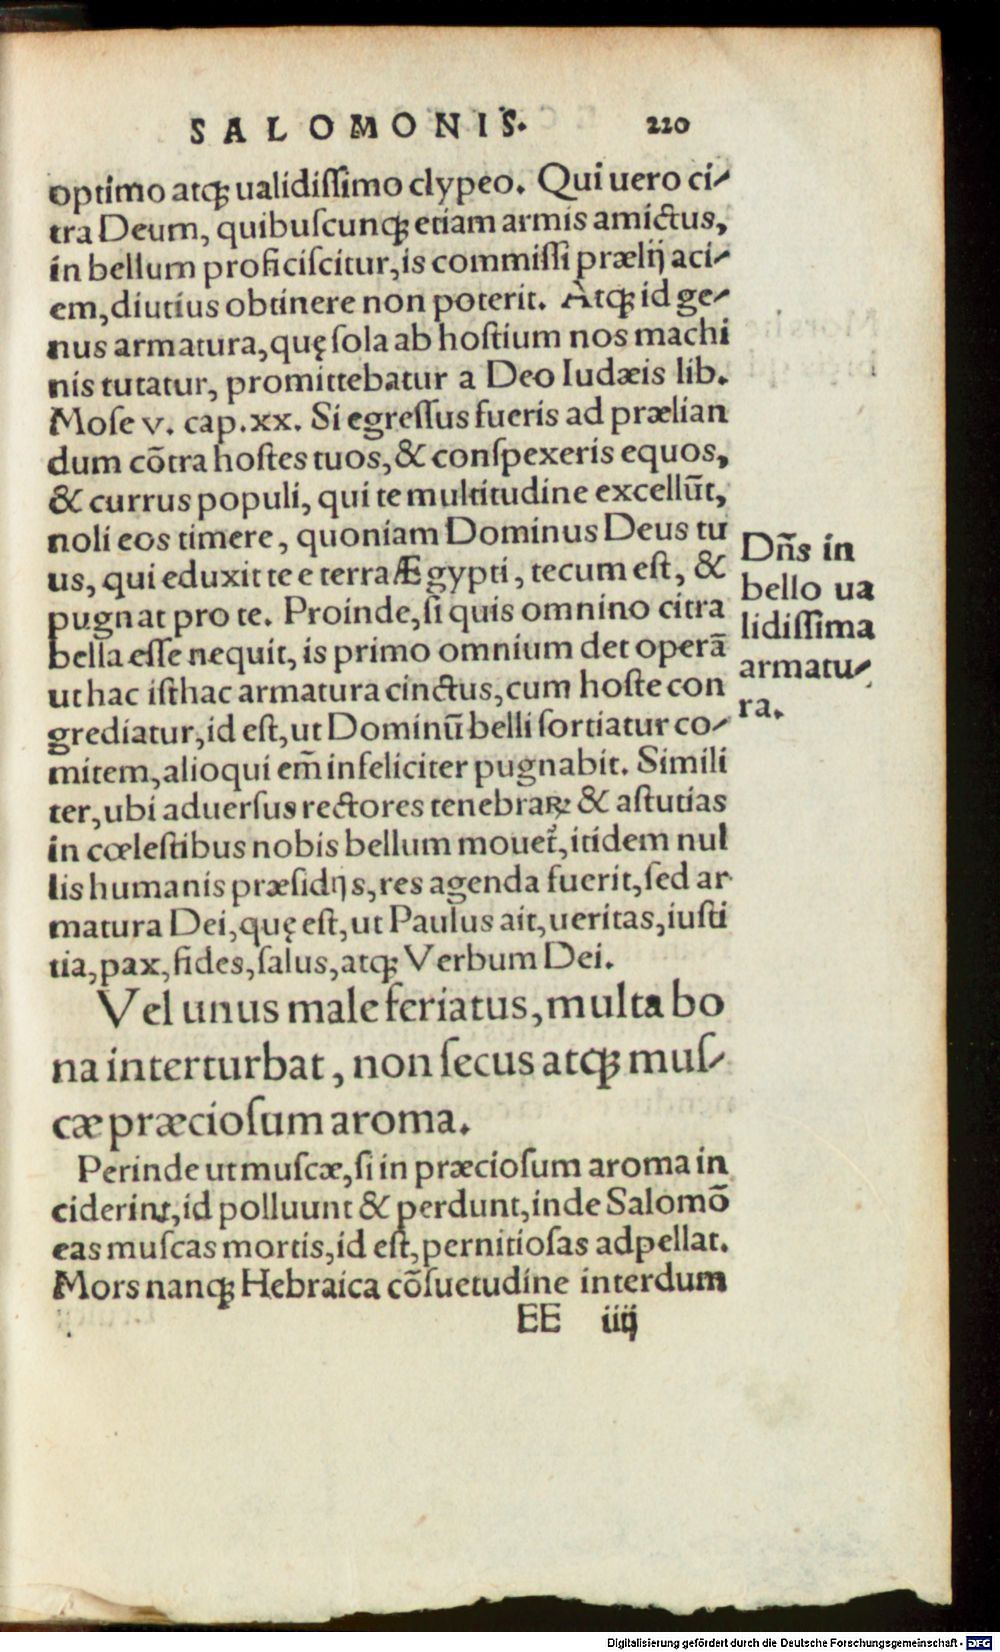 SALOMONIS. 220
optimo atqꝫ ualidiſſimo clypeo. Qui uero ci⸗
tra Deum, quibuſcunqꝫ etiam armis amictus,
in bellum proficiſcitur, is commiſſi prælij aci⸗
em, diutius obtinere non poterit. Atqꝫ id ge⸗
nus armatura, quę ſola ab hoſtium nos machi
nis tutatur, promittebatur a Deo Iudæis lib.
Moſe v. cap.xx. Si egreſſus fueris ad prælian
dum cõtra hoſtes tuos, & conſpexeris equos,
& currus populi, qui te multitudine excellũt,
noli eos timere, quoniam Dominus Deus tu
us, qui eduxit te e terra Ægypti, tecum eſt, &
pugnat pro te. Proinde, ſi quis omnino citra
bella eſſe nequit, is primo omnium det operã
ut hac iſthac armatura cinctus, cum hoſte con
grediatur, id eſt, ut Dominũ belli ſortiatur co⸗
mitem, alioqui em̃ infeliciter pugnabit. Simili
ter, ubi aduerſus rectores tenebraꝝ & aſtutias
in cœleſtibus nobis bellum mouet᷑, itidem nul
lis humanis præſidijs, res agenda fuerit, ſed ar
matura Dei, quę eſt, ut Paulus ait, ueritas, iuſti
tia, pax, fides, ſalus, atqꝫ Verbum Dei.
Dñs in
bello ua
lidiſſima
armatu⸗
ra.
Vel unus male feriatus, multa bo
na interturbat, non ſecus atqꝫ muſ⸗
cæ præcioſum aroma.
Perinde ut muſcæ, ſi in præcioſum aroma in
ciderint, id polluunt & perdunt, inde Salomõ
eas muſcas mortis, id eſt, pernitioſas adpellat.
Mors nanqꝫ Hebraica cõſuetudine interdum
EE iiij
Digitalisierung gefördert durch die Deutsche Forschungsgemeinschaft - DFG